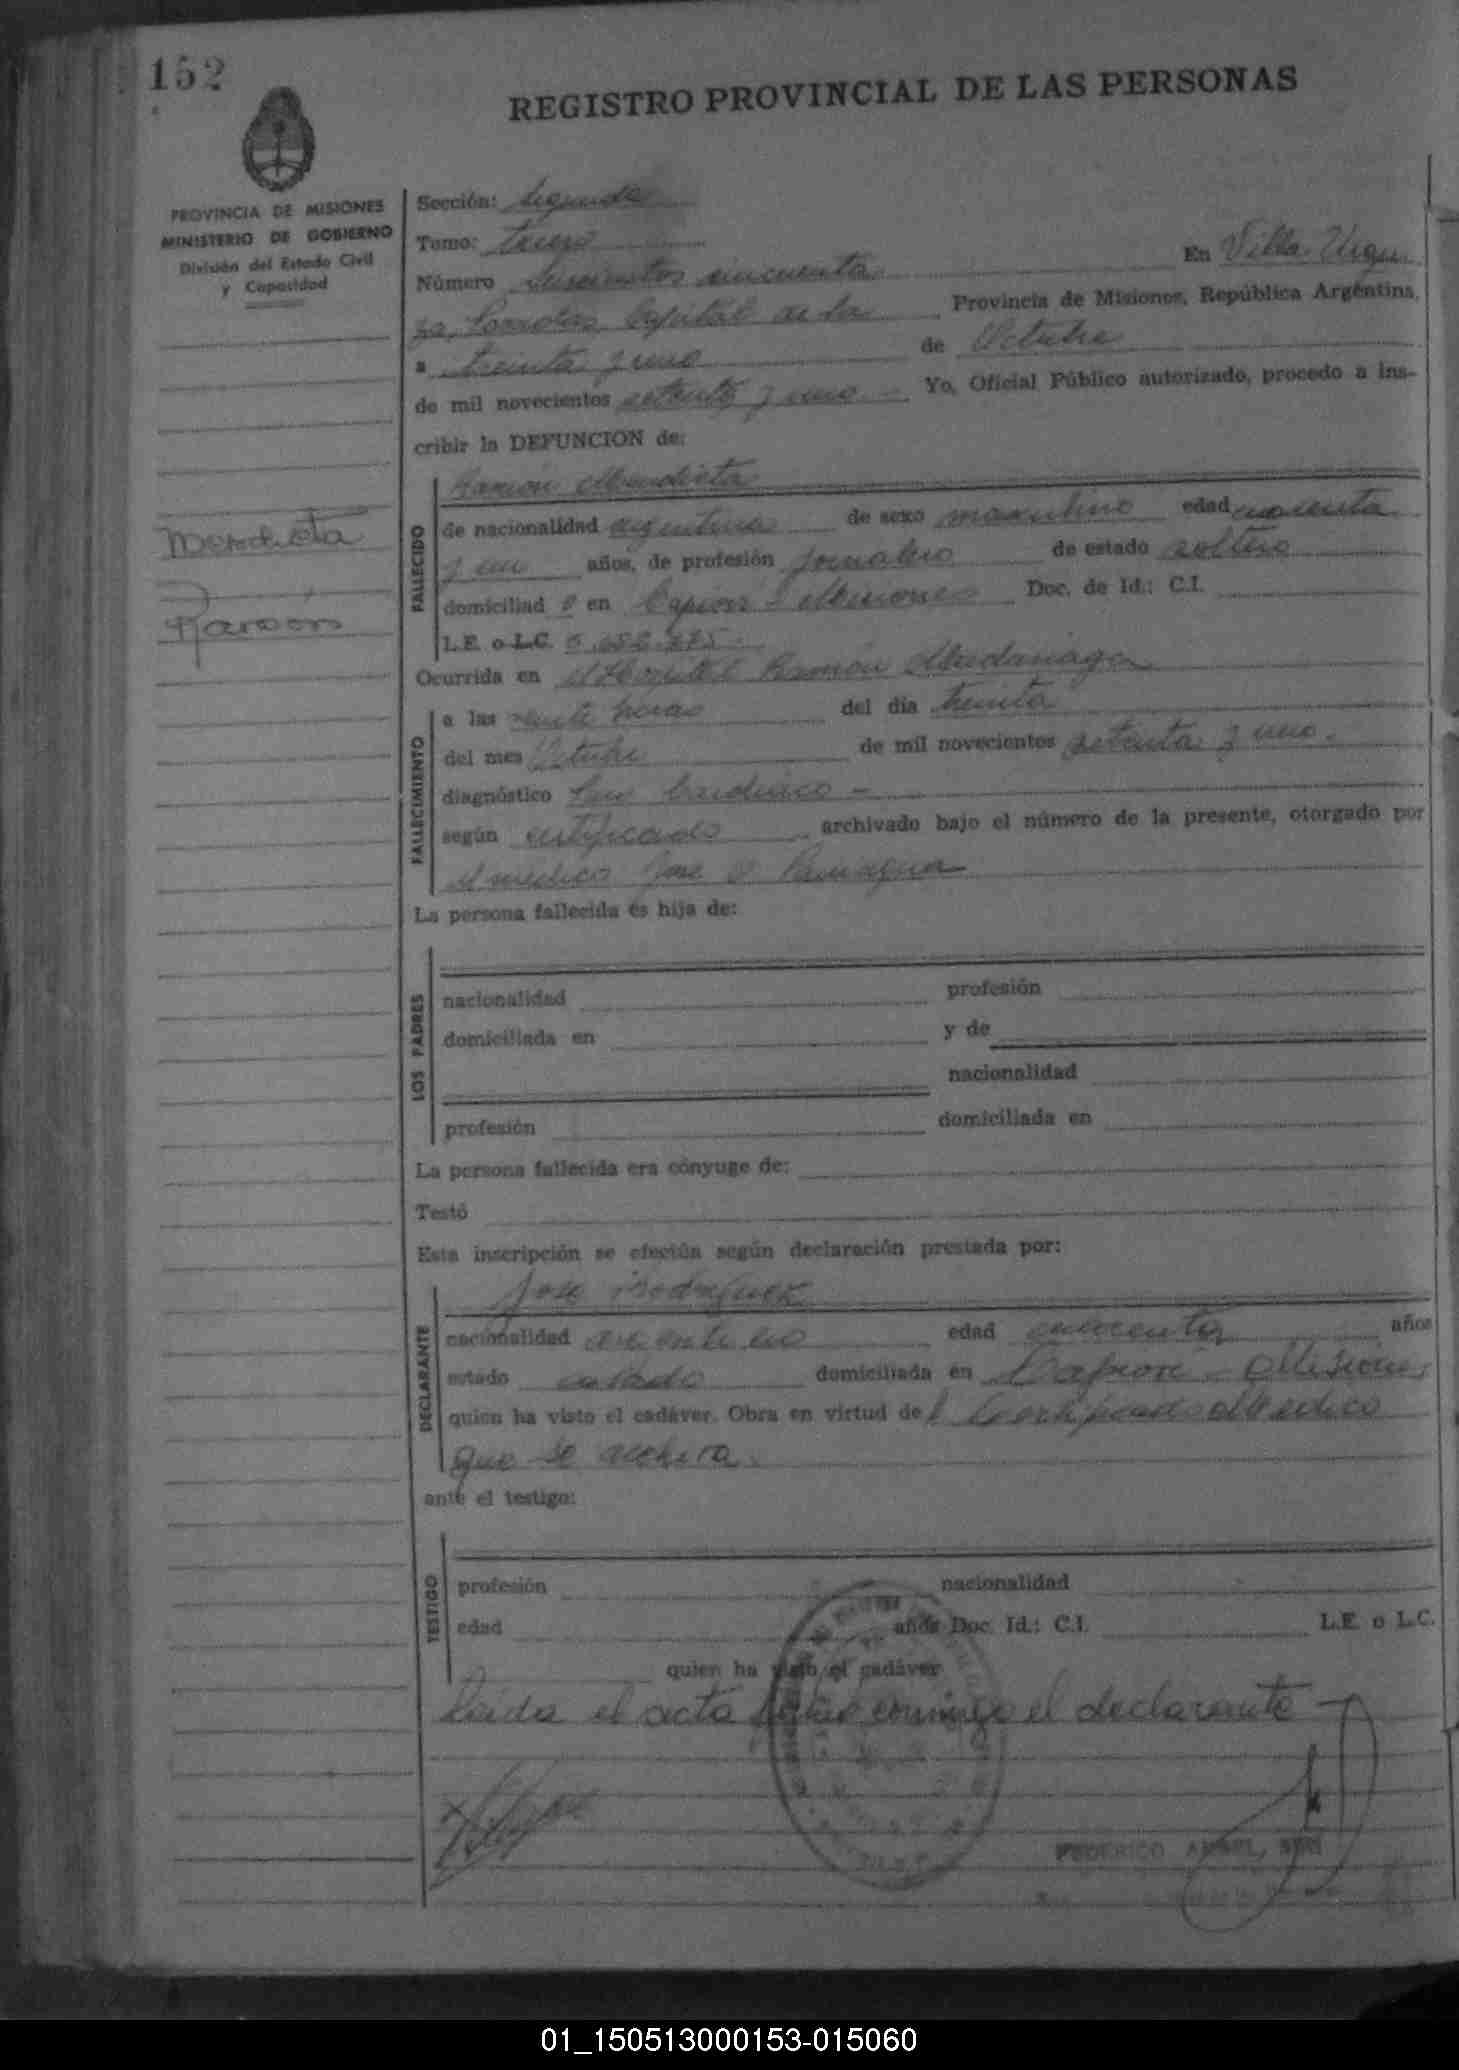 152
REGISTRO PROVINCIAL DE LAS PERSONAS
PROVINCIA DE MISIONES
MINISTERIO DE GOBIERNO
División del Estado Civil
y Capacidad
Sección: Segunda
Tomo: tercero
Número doscientos cincuenta
En Villa Urqui
za, Posadas, Capital de la Provincia de Misiones, República Argentina,
a treinta y uno de Octubre
de mil novecientos setenta y uno.- Yo, Oficial Público autorizado, procedo a ins-
cribir la DEFUNCION de:
Mendieta
Ramón
FALLECIDO
Ramón Mendieta
de nacionalidad argentina de sexo masculino edad
y un años, de profesión jornalero de estado soltero
domiciliad o en Capiovi - Misiones Doc. de Id.: C.I.
L.E. o L.C.
Ocurrida en el Hospital Ramón Madariaga
FALLECIMIENTO
a las veinte horas del día treinta
del mes Octubre de mil novecientos setenta y uno.
diagnóstico Paro Cardiaco -
según certificado archivado bajo el número de la presente, otorgado por
el medico Jose
La persona fallecida es hija de:
LOS PADRES
nacionalidad profesión
domiciliada en y de
nacionalidad
profesión domiciliada en
La persona fallecida era cónyuge de:
Testó
Esta inscripción se efectúa según declaración prestada por:
DECLARANTE
Jose Rodriguez
nacionalidad argentino edad años
estado casado domiciliada en Capiovi - Misiones
quien ha visto el cadáver. Obra en virtud del Certificado Medico
que se archiva.
ante el testigo:
TESTIGO
profesión nacionalidad
edad años Doc. Id.: C.I. L.E. o L.C.
quien ha visto el cadáver
Leida el acta firma conmigo el declarante
FEDERICO ANGEL
01_150513000153-015060